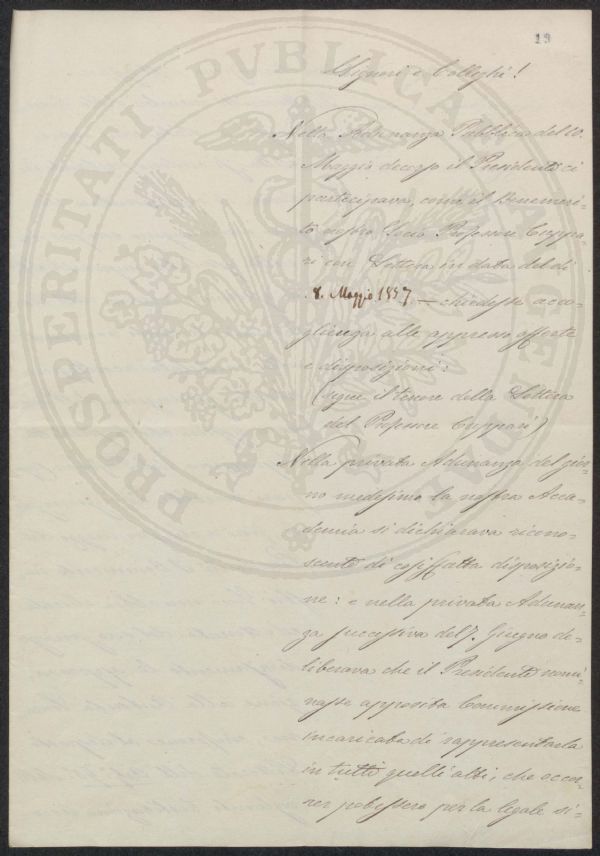 19
Signori e Colleghi!
Nella Adunanza Pubblica del 10.
Maggio decorso il Presidente ci
partecipava, come il Benemeri-
to nostro Socio Professore Cuppa-
ri con Lettera in data del dì
8. Maggio 1857 — chiedesse acco-
glienza alle appresso offerte
e disposizioni:
(segue il tenore della Lettera
del Professore Cuppari)
Nella privata Adunanza del gior-
no medesimo la nostra Acca-
demia si dichiarava ricono-
scente di cosiffatta disposizio-
ne: e nella privata Adunan-
za successiva del 7. Giugno de-
liberava che il Presidente nomi-
nasse apposita Commissione
incaricata di rappresentarla
in tutti quelli atti, che occor-
rer potessero per la legale si-
PROSPERITATI PVBLICAE AVGENDAE